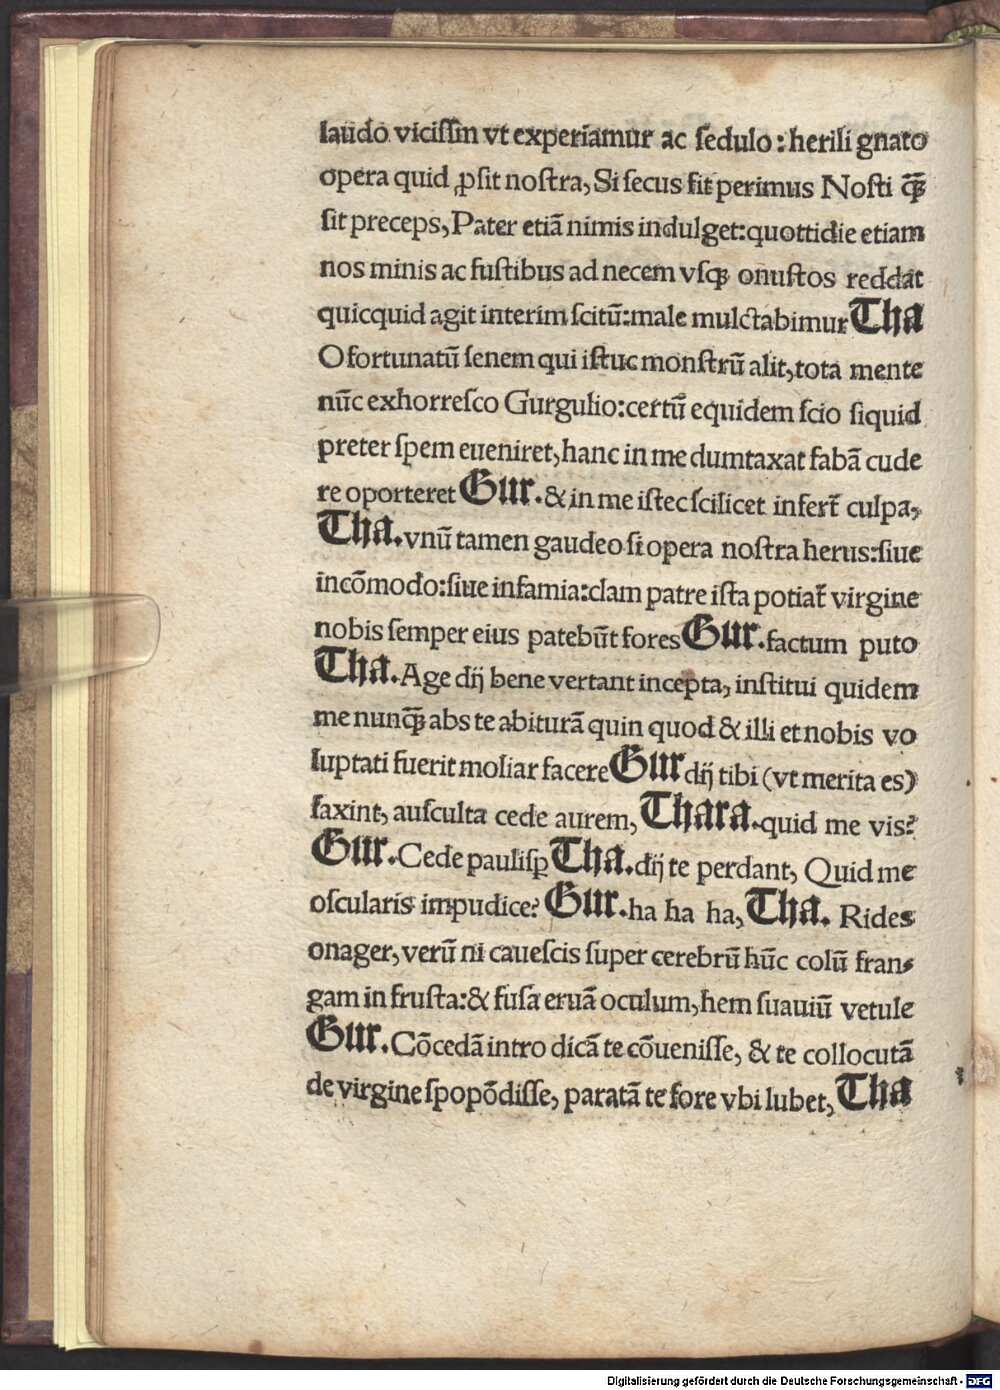 laudo vicissim vt experiamur ac sedulo: herili gnato
opera quid ꝓsit nostra, Si secus sit perimus Nosti q̃ꝫ
sit preceps, Pater etiã nimis indulget: quottidie etiam
nos minis ac fustibus ad necem vsqꝫ onustos reddat
quicquid agit interim scitũ: male mulctabimur Tha
O fortunatũ senem qui istuc monstrũ alit, tota mente
nũc exhorresco Gurgulio: certũ equidem scio siquid
preter spem eueniret, hanc in me dumtaxat fabã cude
re oporteret Gur. & in me istec scilicet infert̃ culpa,
Tha. vnũ tamen gaudeo si opera nostra herus: siue
incõmodo: siue infamia: clam patre ista potiat̃ virgine
nobis semper eius patebũt fores Gur. factum puto
Tha. Age dij bene vertant incepta, institui quidem
me nunq̃ꝫ abs te abiturã quin quod & illi et nobis vo
luptati fuerit moliar facere Gur dij tibi (vt merita es)
faxint, ausculta cede aurem, Thara. quid me vis?
Gur. Cede paulisꝑ Tha. dij te perdant, Quid me
oscularis impudice? Gur. ha ha ha, Tha. Rides
onager, verũ ni cauescis super cerebrũ hũc colũ fran⸗
gam in frusta: & fusa eruã oculum, hem suauiũ vetule
Gur. Cõcedã intro dicã te cõuenisse, & te collocutã
de virgine spopõdisse, paratã te fore vbi lubet, Tha
Digitalisierung gefördert durch die Deutsche Forschungsgemeinschaft - DFG